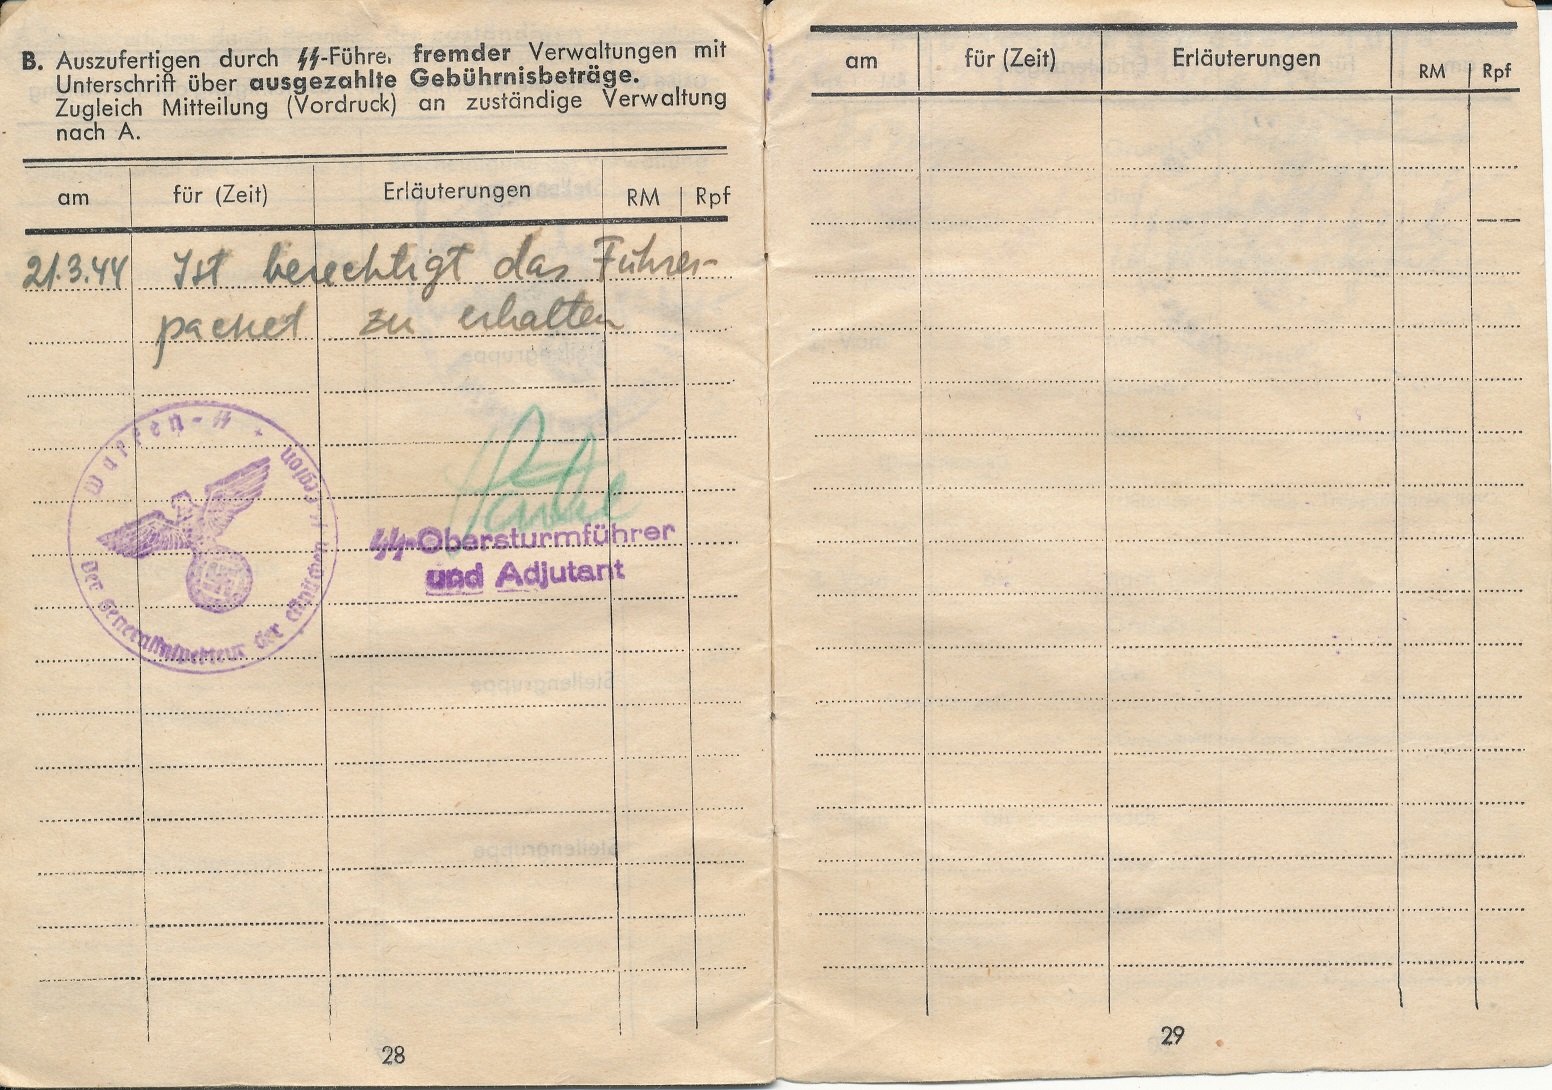 B. Auszufertigen durch ᛋᛋ-Führer fremder Verwaltungen mit
Unterschrift über ausgezahlte Gebührnisbeträge.
Zugleich Mitteilung (Vordruck) an zuständige Verwaltung
nach A.
am für (Zeit) Erläuterungen RM Rpf
21.3.44 Ist berechtigt das Führer-
packet zu erhalten
Waffen-ᛋᛋ
Der Generalinspekteur der ᛋᛋ Legion
ᛋᛋ-Obersturmführer
und Adjutant
28
am für (Zeit) Erläuterungen RM Rpf
29